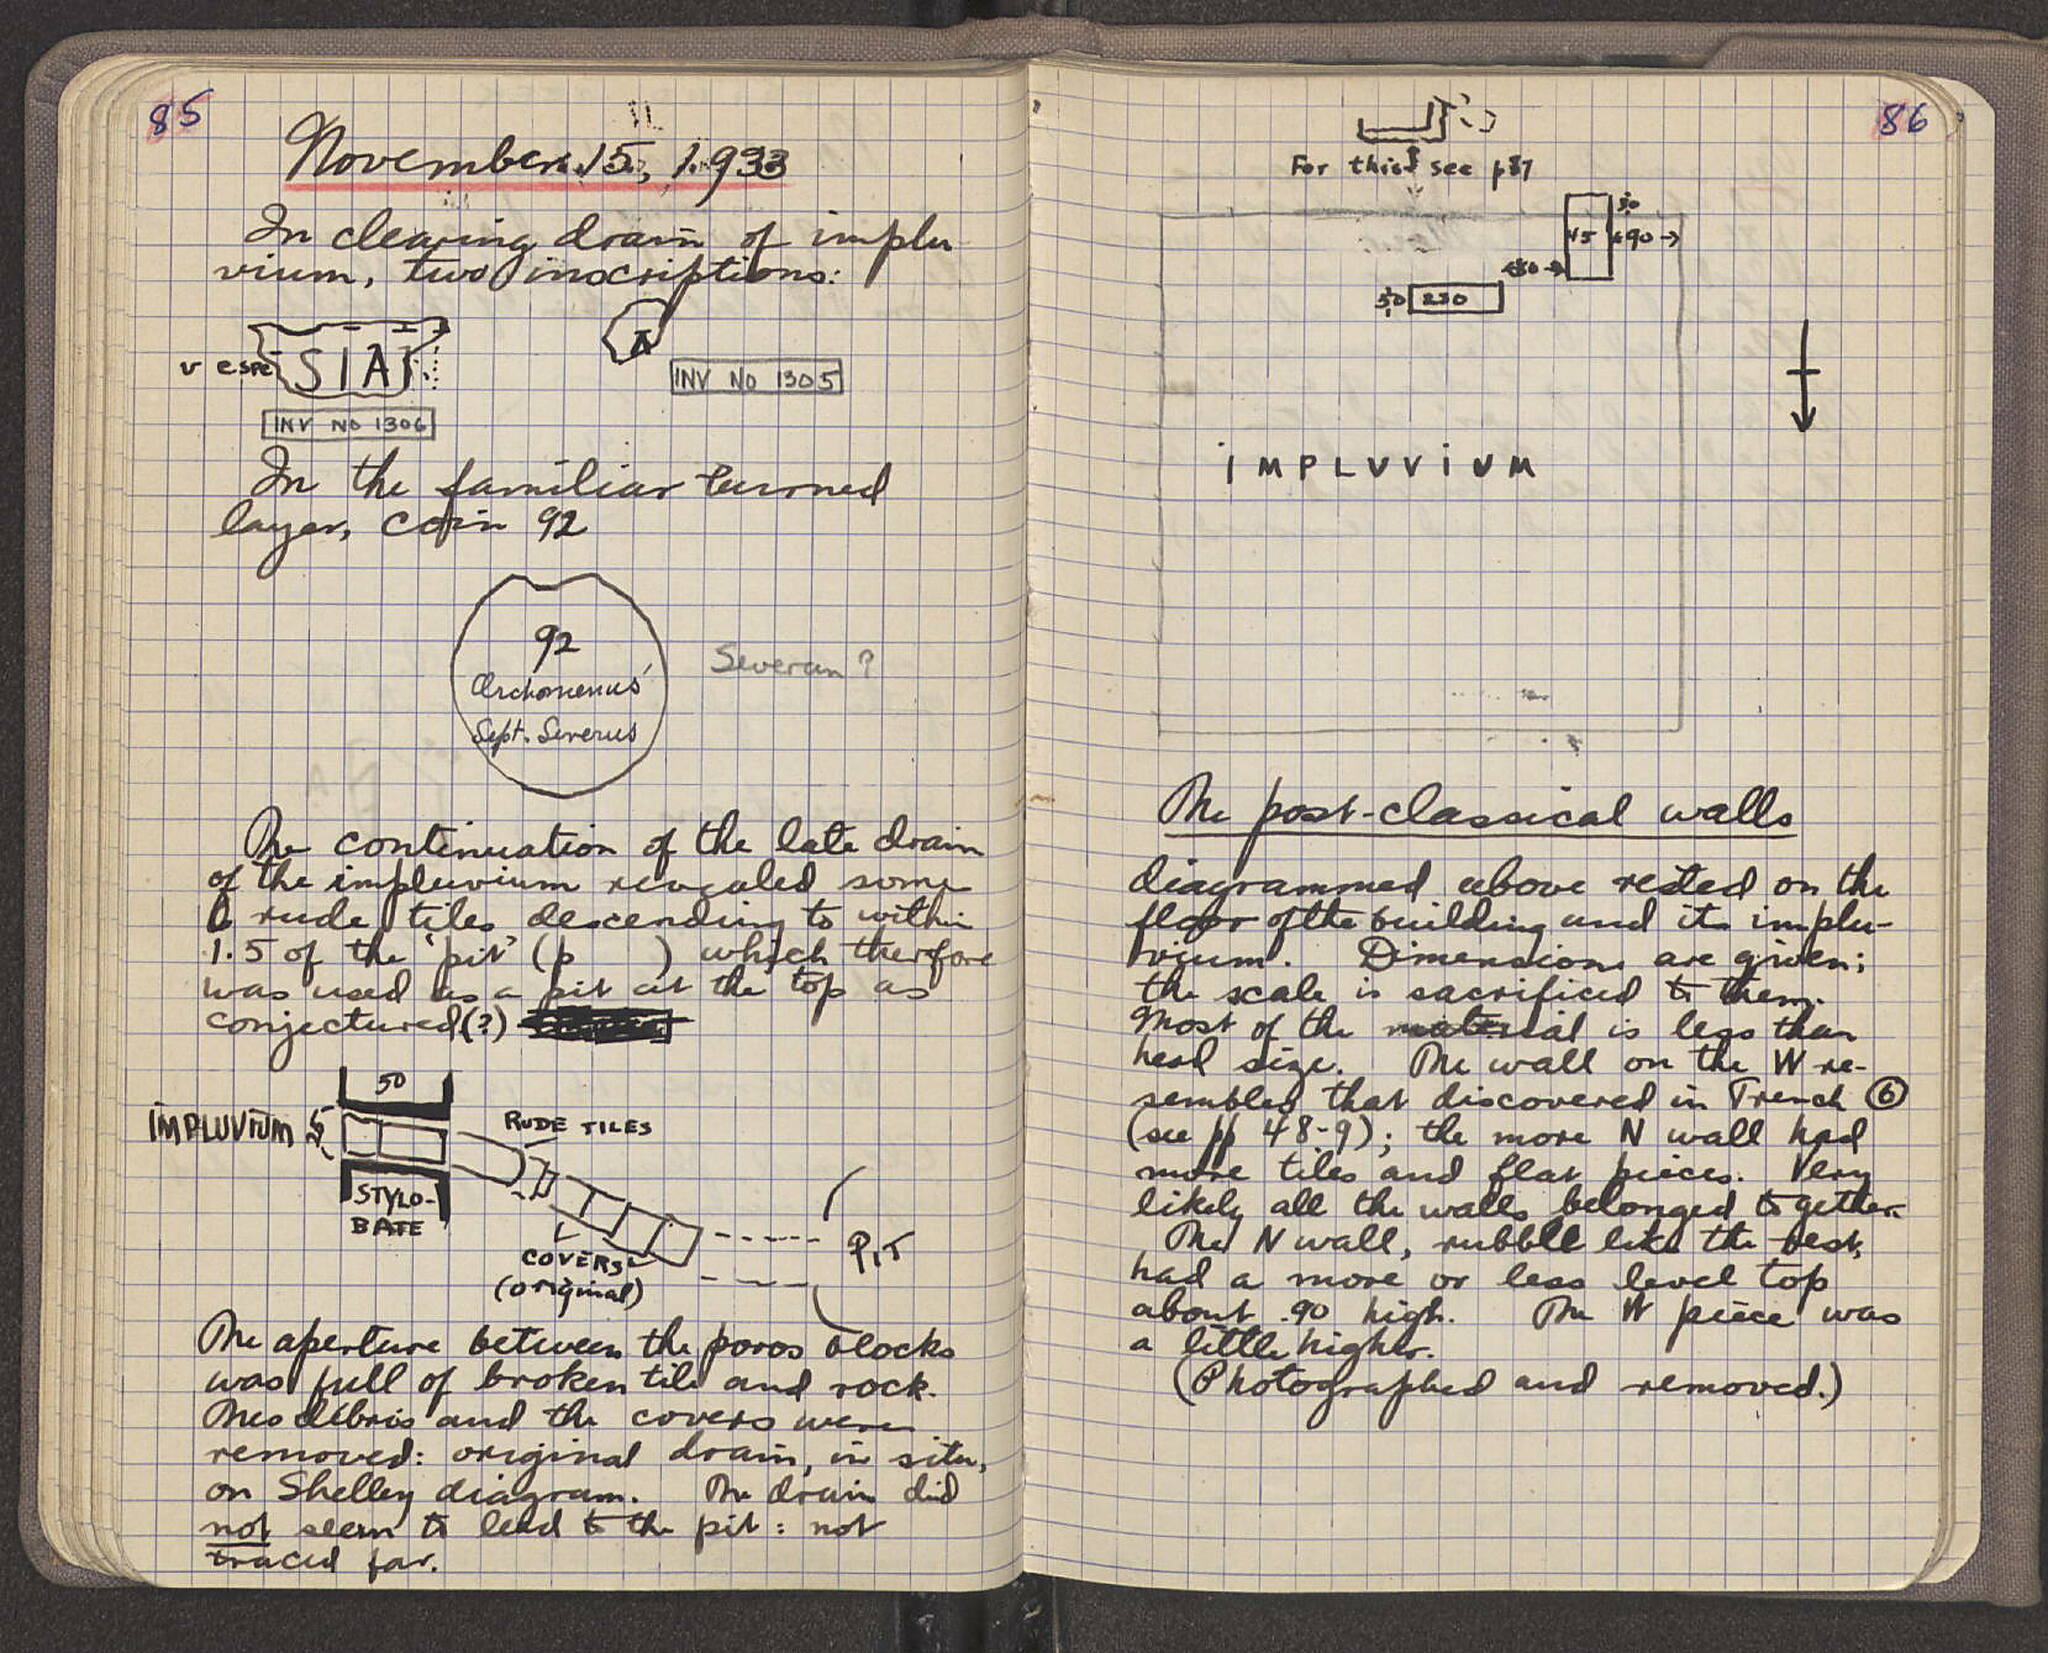 85
November 15, 1933
In clearing drain of implu-
vium, two inscriptions:
SIA
INV NO 1305
INV NO 1306
In the familiar turned
layer, coin 92
92
Orchomenus
Sept. Severus
Severan?
The continuation of the late drain
of the impluvium revealed some
rude tiles descending to within
1.5 of the 'pit' (p      ) which therefore
was used as a pit at the top as
conjectured(?)
50
IMPLUVIUM
RUDE TILES
STYLO-
BATE
COVERS
(original)
PIT
The aperture between the poros blocks
was full of broken tile and rock.
This debris and the covers were
removed: original drain, in situ,
on Shelley diagram. The drain did
not seem to lead to the pit: not
traced far.
86
For this see p87
50
45
90
80
50
230
IMPLUVIUM
The post-classical walls
diagrammed above rested on the
floor of the building and its implu-
vium. Dimensions are given;
the scale is sacrificed to them.
Most of the material is less than
head size. The wall on the W re-
sembles that discovered in Trench 6
(see pp 48-9); the more N wall had
more tiles and flat pieces. Very
likely all the walls belonged together.
The N wall, rubble like the rest,
had a more or less level top
about .90 high. The W piece was
a little higher.
(Photographed and removed.)